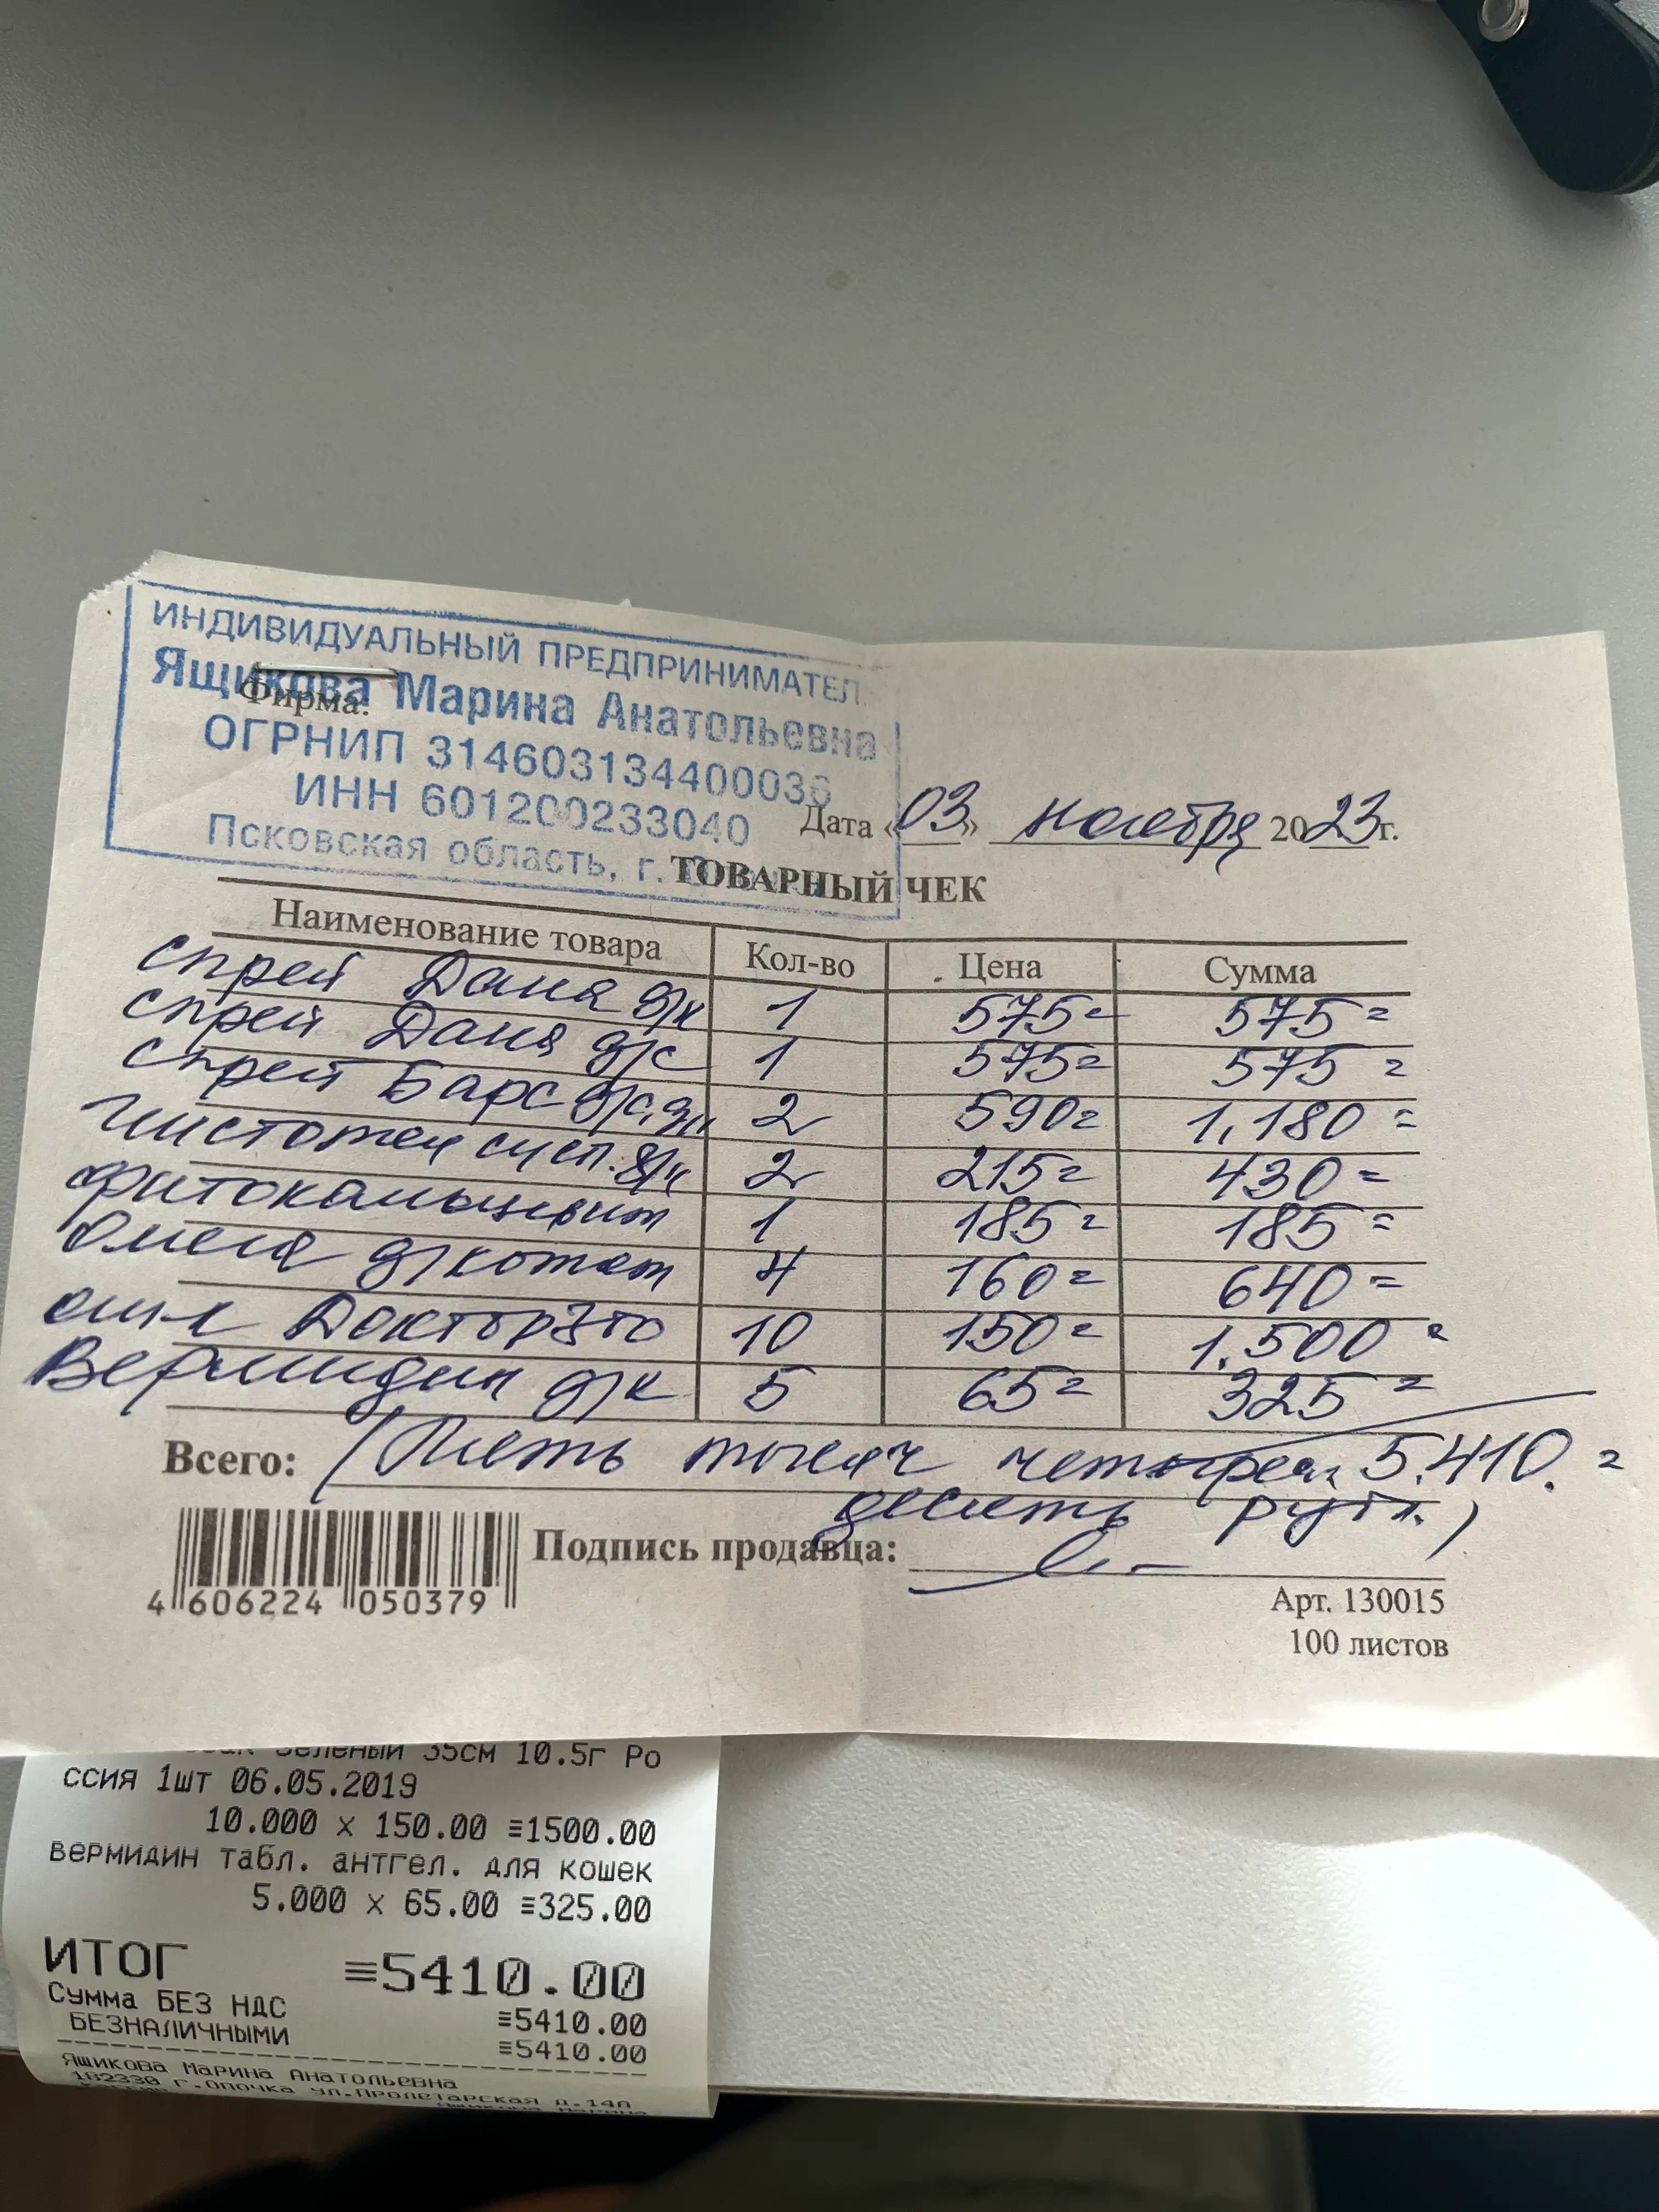 ИНДИВИДУАЛЬНЫЙ ПРЕДПРИНИМАТЕЛ
Ящикова Марина Анатольевна
Фирма:
ОГРНИП 314603134400036
ИНН 601200233040
Псковская область, г.
Дата «03» ноября 2023г.
ТОВАРНЫЙ ЧЕК
Наименование товара Кол-во Цена Сумма
спрей Дана д/к 1 575= 575=
спрей Дана д/с 1 575= 575=
спрей Барс д/с, д/к 2 590= 1,180=
Чистотел сусп. д/к 2 215= 430=
фитокальцевит 1 185= 185=
Омега д/котят 4 160= 640=
ош-к Доктор Zoo 10 150= 1.500=
Вермидин д/к 5 65= 325=
Всего: (Пять тысяч четыреста 5.410.=
десять рубл.)
Подпись продавца:
4 606224 050379
Арт. 130015
100 листов
зеленый 35см 10.5г Ро
ссия 1шт 06.05.2019
10.000 x 150.00 ≡1500.00
вермидин табл. антгел. для кошек
5.000 x 65.00 ≡325.00
ИТОГ ≡5410.00
Сумма БЕЗ НДС ≡5410.00
БЕЗНАЛИЧНЫМИ ≡5410.00
Ящикова Марина Анатольевна
182330 г.Опочка ул.Пролетарская д.14п